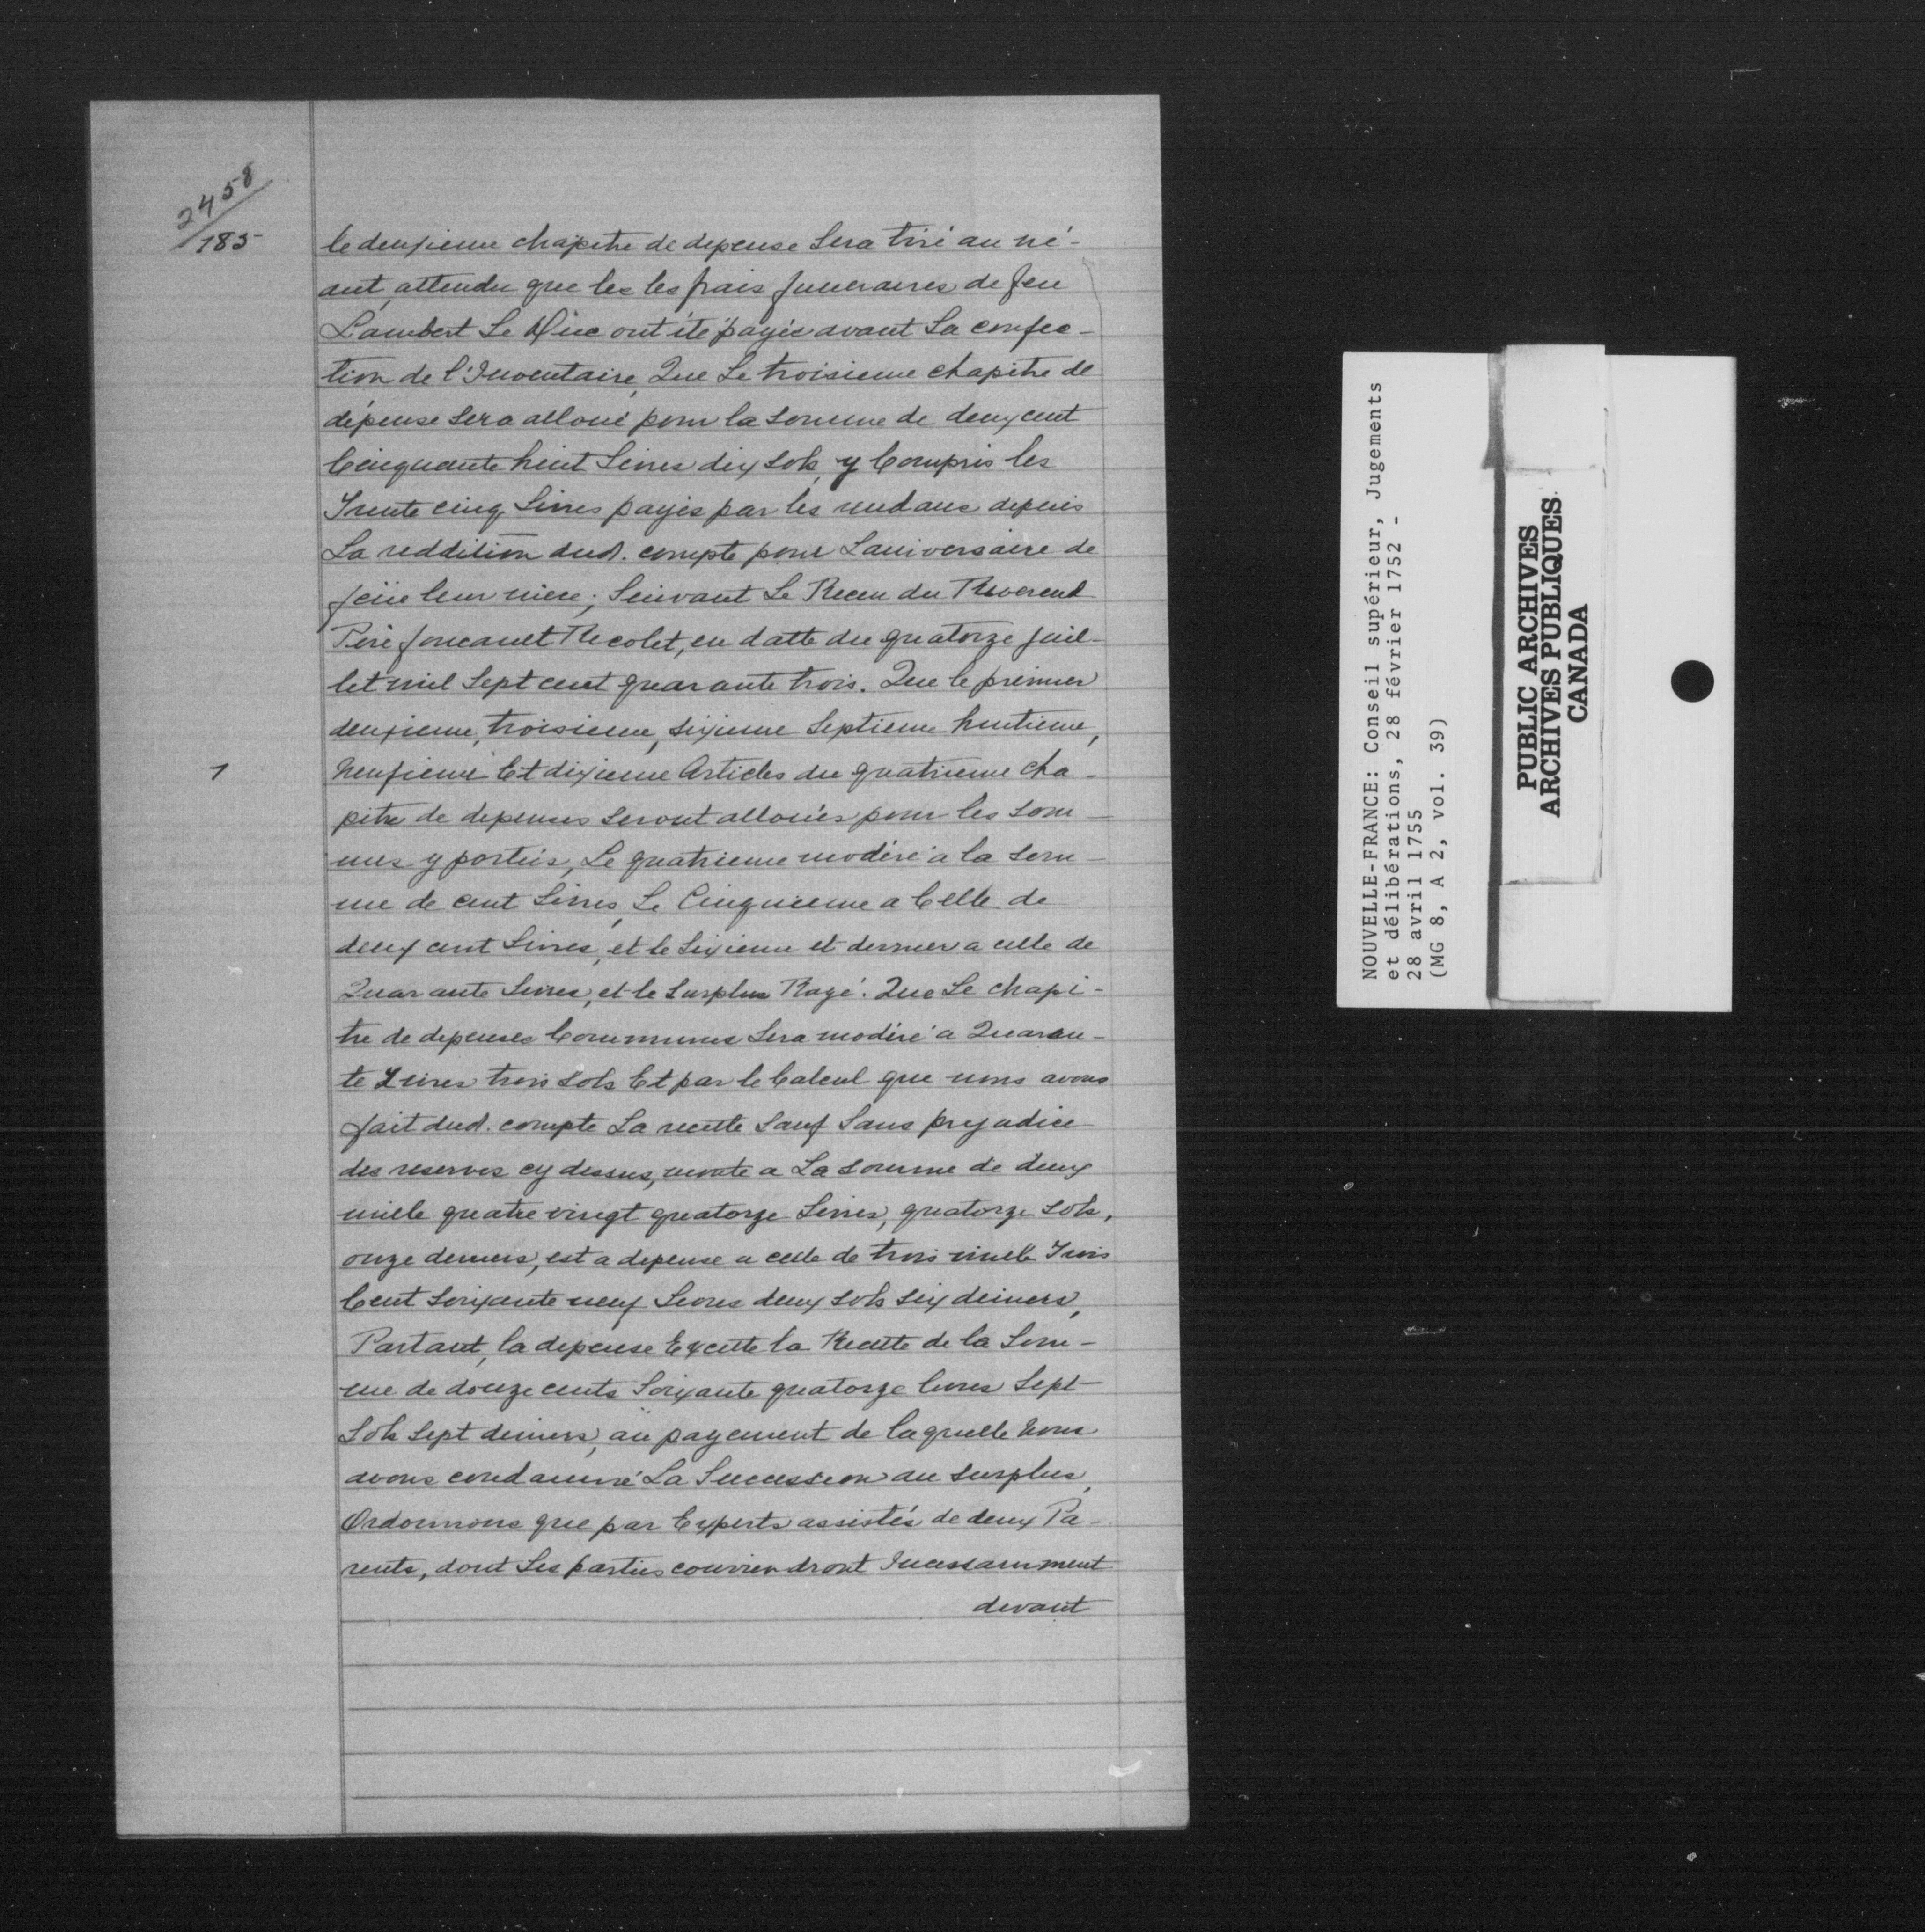 2458
185
le deuxieme chapitre de depense Sera tiré au né-
ant, attendu que les les frais funeraires de feu
Lambert Le Duc ont été payés avant La confec-
tion de l'Inventaire, Que Le troisieme chapitre de
dépense Sera alloué pour la Somme de deux cent
Cinquante huit Livres dix Sols, y Compris les
Trente cinq Livres payés par les rendans depuis
La reddition dud. compte pour Laniversaire de
feüe leur mere; Suivant Le Receu du Reverend
Pere foucault Recolet, en datte du quatorze juil-
let mil Sept cent quarante trois. Que le premier
deuxieme, troisieme, Sixieme Septieme huitieme,
1
Neufieme Et dixieme Articles du quatrieme cha-
pitre de depenses Seront alloués pour les Som-
mes y portées, Le quatrieme modéré a la Som-
me de cent Livres, Le Cinquieme a Celle de
deux cent Livres, et le Sixieme et dernier a celle de
Quarante Livres, et le Surplus Rayé. Que Le chapi-
tre de depenses Communes Sera modéré a Quaran-
te Livres trois Sols Et par le Calcul que nous avons
fait dud. compte La recette Sauf Sans prejudice
des reserves cy dessus, monte a La Somme de deux
mille quatre vingt quatorze Livres, quatorze Sols,
onze deniers, est a depense a celle de trois mille Trois
Cent Soixante neuf Livres deux Sols Six deniers,
Partant, la depense Excette la Recette de la Som-
me de douze cents Soixante quatorze livres Sept
Sols Sept deniers, au payement de laquelle Nous
avons condamné La Succession au Surplus,
Ordonnons que par Experts assistés de deux Pa-
rents, dont Les parties conviendront Incessamment
devant
NOUVELLE-FRANCE: Conseil supérieur, Jugements
et délibérations, 28 février 1752 -
28 avril 1755
(MG 8, A 2, vol. 39)
PUBLIC ARCHIVES
ARCHIVES PUBLIQUES
CANADA